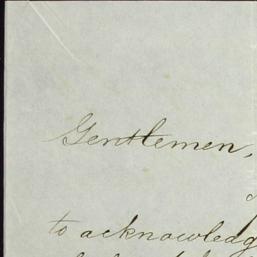 Gentlemen,
to acknowledg